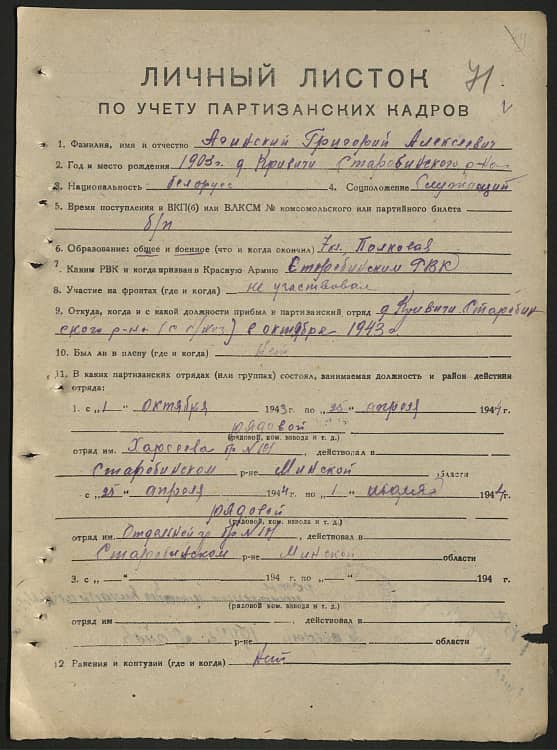 71
ЛИЧНЫЙ ЛИСТОК
ПО УЧЕТУ ПАРТИЗАНСКИХ КАДРОВ
1. Фамилия, имя и отчество Адинский Григорий Алексеевич
2. Год и место рождения 1903 г. д Кривичи Старобинского р-на
3. Национальность белорус 4. Соцположение Служащий
5. Время поступления в ВКП(б) или ВЛКСМ № комсомольского или партийного билета
б/п
6. Образование: общее и военное (что и когда окончил) 7кл. Полковая
7. Каким РВК и когда призван в Красную Армию Старобинским РВК
8. Участие на фронтах (где и когда) не участвовал
9. Откуда, когда и с какой должности прибыл в партизанский отряд д Кривичи Старобин
ского р-на в октябре 1943 г
10. Был ли в плену (где и когда) Нет
11. В каких партизанских отрядах (или группах) состоял, занимаемая должность и район действия
отряда:
1. с „1 " октября 1943 г. по „25 " апреля 1944 г.
рядовой
(рядовой, ком. взвода и т. д.)
отряд им. бр №101, действовал в
Старобинском р-не Минской области
с „25 " апреля 1944 г. по „1 " июля 1944 г.
рядовой
(рядовой, ком. взвода и т. д.)
отряд им. бр №101, действовал в
Старобинском р-не Минской области
3. с „ " 194 г. по „ " 194 г.
(рядовой ком. взвода и т. д.)
отряд им действовал в
р-не области
12 Ранения и контузии (где и когда) Нет